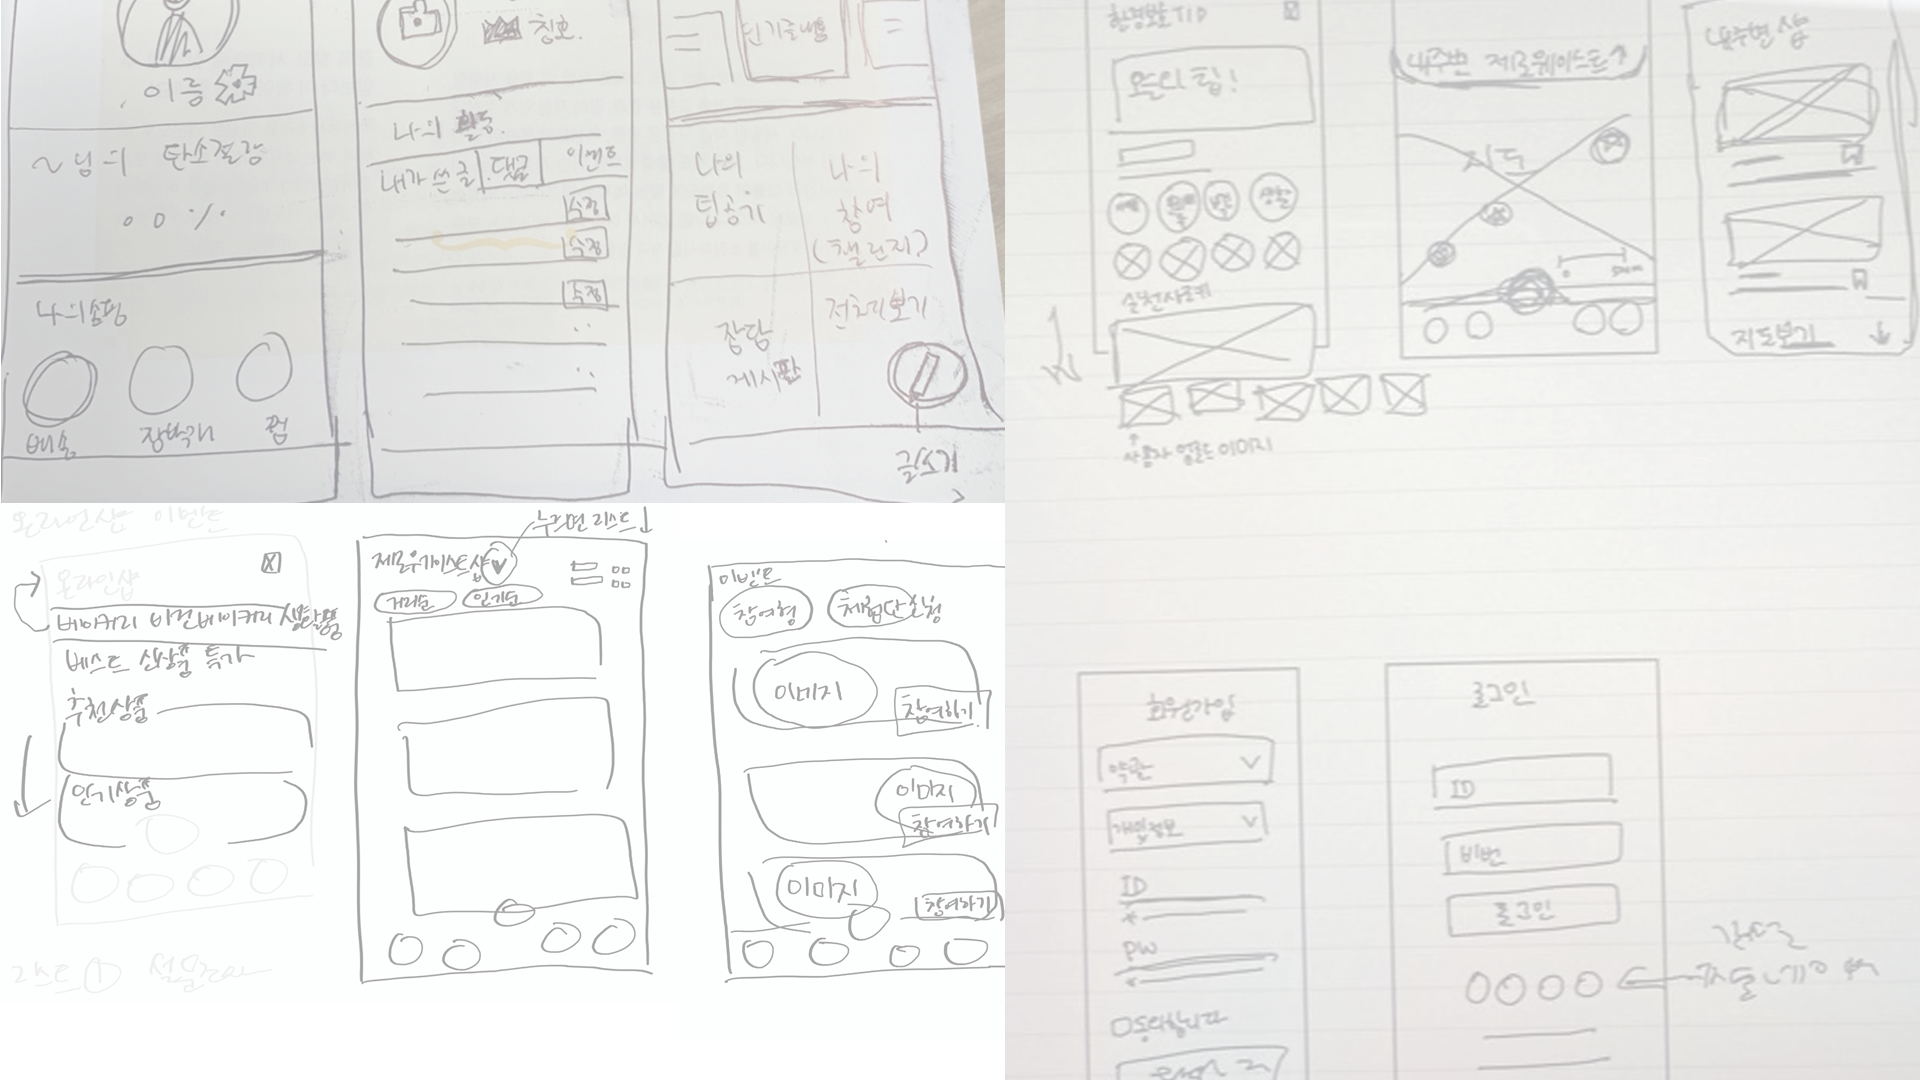 이름
~님의 탄소절감
00%
나의쇼핑
배송
장바구니
찜
칭호.
나의 활동.
내가 쓴 글 댓글 이벤트
수정
수정
수정
인기글
나의
팁공기
나의
참여
(챌린지)
잡담
게시판
전체보기
글쓰기
환경보호 TIP
오늘의 팁!
생활
실천사례
사용자 업로드 이미지
내주변 제로웨이스트
지도
0 500m
내주변 샵
지도보기
온라인샵 이벤트
온라인샵
베이커리 비건베이커리 생활용품
베스트 신상품 특가
추천상품
인기상품
리스트 ①
누르면 리스트↓
제로웨이스트샵
거리순 인기순
이벤트
참여형 체험단신청
이미지
참여하기
이미지
참여하기
이미지
참여하기
회원가입
약관
개인정보
ID
*
PW
*
동의합니다
로그인
ID
비번
로그인